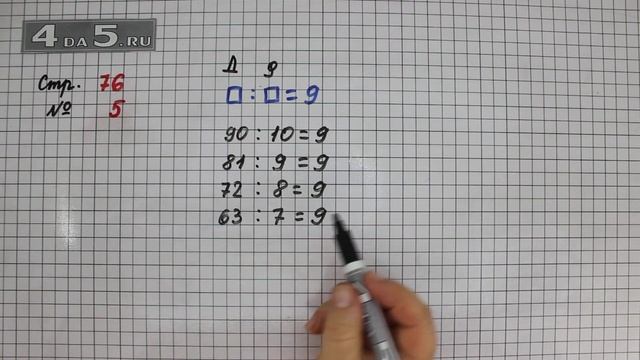 4DA5.RU
Стр. 76
№ 5
Д д
□ : □ = 9
90 : 10 = 9
81 : 9 = 9
72 : 8 = 9
63 : 7 = 9